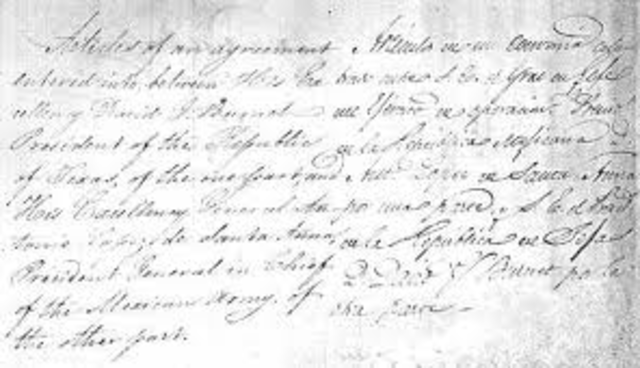 Articles of an agreement
entered into, between His Exce
llency David G. Burnet
President of the Republic
of Texas, of the one part, and
His Excellency General An
tonio Lopez de Santa Anna,
President General in Chief
of the Mexican Army, of
the other part.
en un convenio cele
S. E. el Gral en Gefe
de operacion
la Republica Mexicana D.
Anto Lopez de Santa Anna
por una parte, y S. E. el
de la Republica de Tejas
D. David G. Burnet por la
otra parte